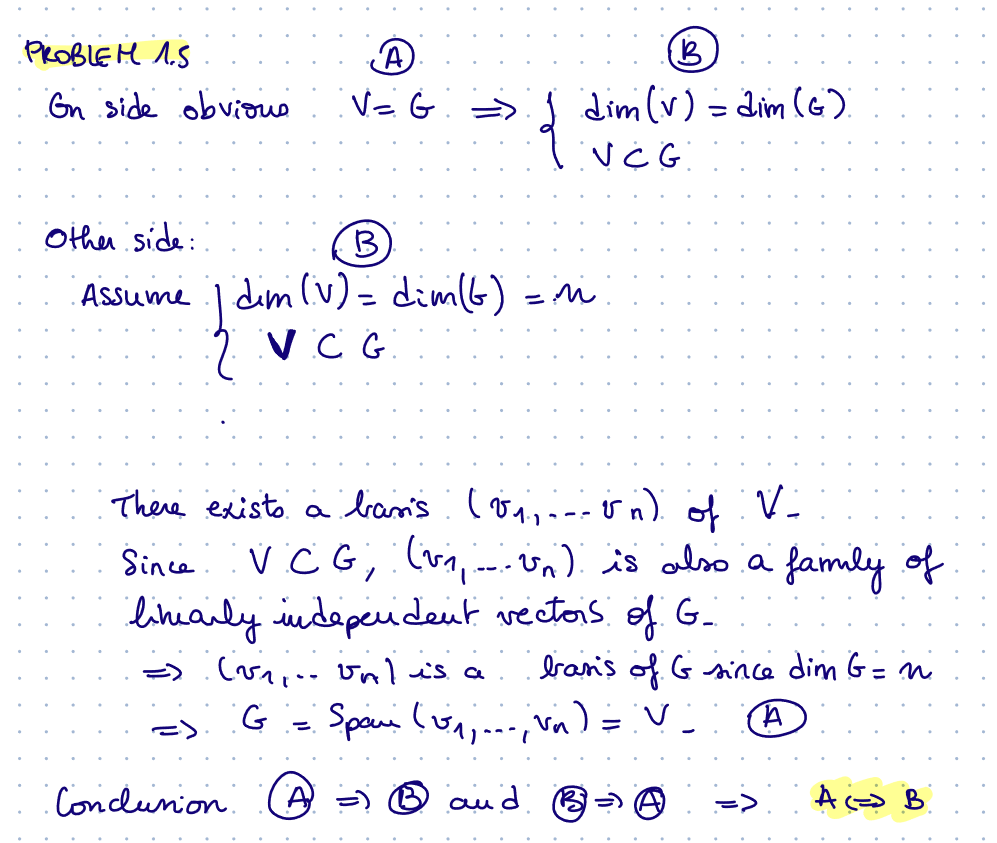 PROBLEM 1.5
Ⓐ Ⓑ
On side obvious V = G ⟹ { dim(V) = dim(G)
V ⊂ G
Other side: Ⓑ
Assume { dim(V) = dim(G) = n
V ⊂ G
There exists a basis (v₁,... vₙ) of V.
Since V ⊂ G, (v₁,... vₙ) is also a family of
linearly independent vectors of G.
⟹ (v₁,.. vₙ) is a basis of G since dim G = n
⟹ G = Span (v₁,...,vₙ) = V. Ⓐ
Conclusion Ⓐ ⟹ Ⓑ and Ⓑ ⟹ Ⓐ ⟹ A ⟺ B